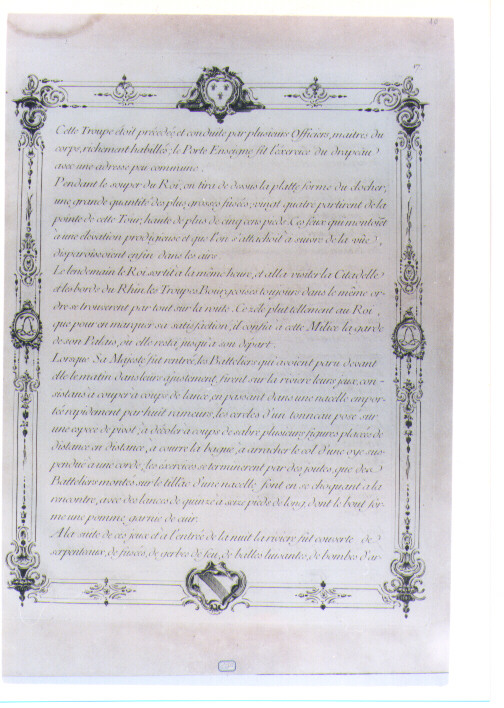 Cette Troupe etoit précédée et conduite par plusieurs Officiers, maitres du
corps, richement habillés; le Porte Enseigne fit l'exercice du drapeau
avec une adresse peu commune.
Pendant le souper du Roi, on tira de dessus la platte forme du clocher,
une grande quantité des plus grosses fusées; vingt quatre partirent de la
pointe de cette Tour, haute de plus de cinq cens pieds. Ces feux qui montoiēt
à une élévation prodigieuse et que l'on s'attachoit à suivre de la vüe,
disparoissoient enfin dans les airs.
Le lendemain le Roi, sortit à la même heure, et alla visiter la Citadelle
et les bords du Rhin, les Troupes Bourgeoises toujours dans le même or-
dre se trouverent par tout sur la route. Ce zele plut tellement au Roi,
que pour en marquer sa satisfaction, il confia à cette Milice la garde
de son Palais, ou elle resta jusqu'à son départ.
Lorsque Sa Majesté fut rentrée, les Batteliers qui avoient paru devant
elle le matin dans leurs ajustemens, firent sur la riviere leurs jeux, con-
sistans à couper à coups de lance, en passant dans une nacelle empor-
tée rapidement par huit rameurs, les cercles d'un tonneau posé sur
une espece de pivot, à décoler à coups de sabre plusieurs figures placées de
distance en distance, à courre la bague, à arracher le col d'une oye sus-
pendue à une corde, les exercices se terminerent par des joutes que des
Batteliers montés sur le tillac d'une nacelle font en se choquant à la
rencontre, avec des lances de quinze à seize pieds de long, dont le bout for-
me une pomme garnie de cuir.
A la suite de ces jeux et à l'entrée de la nuit la riviere fut couverte de
serpenteaux, de fusées, de gerbes de feu, de balles luisantes, de bombes d'ar-